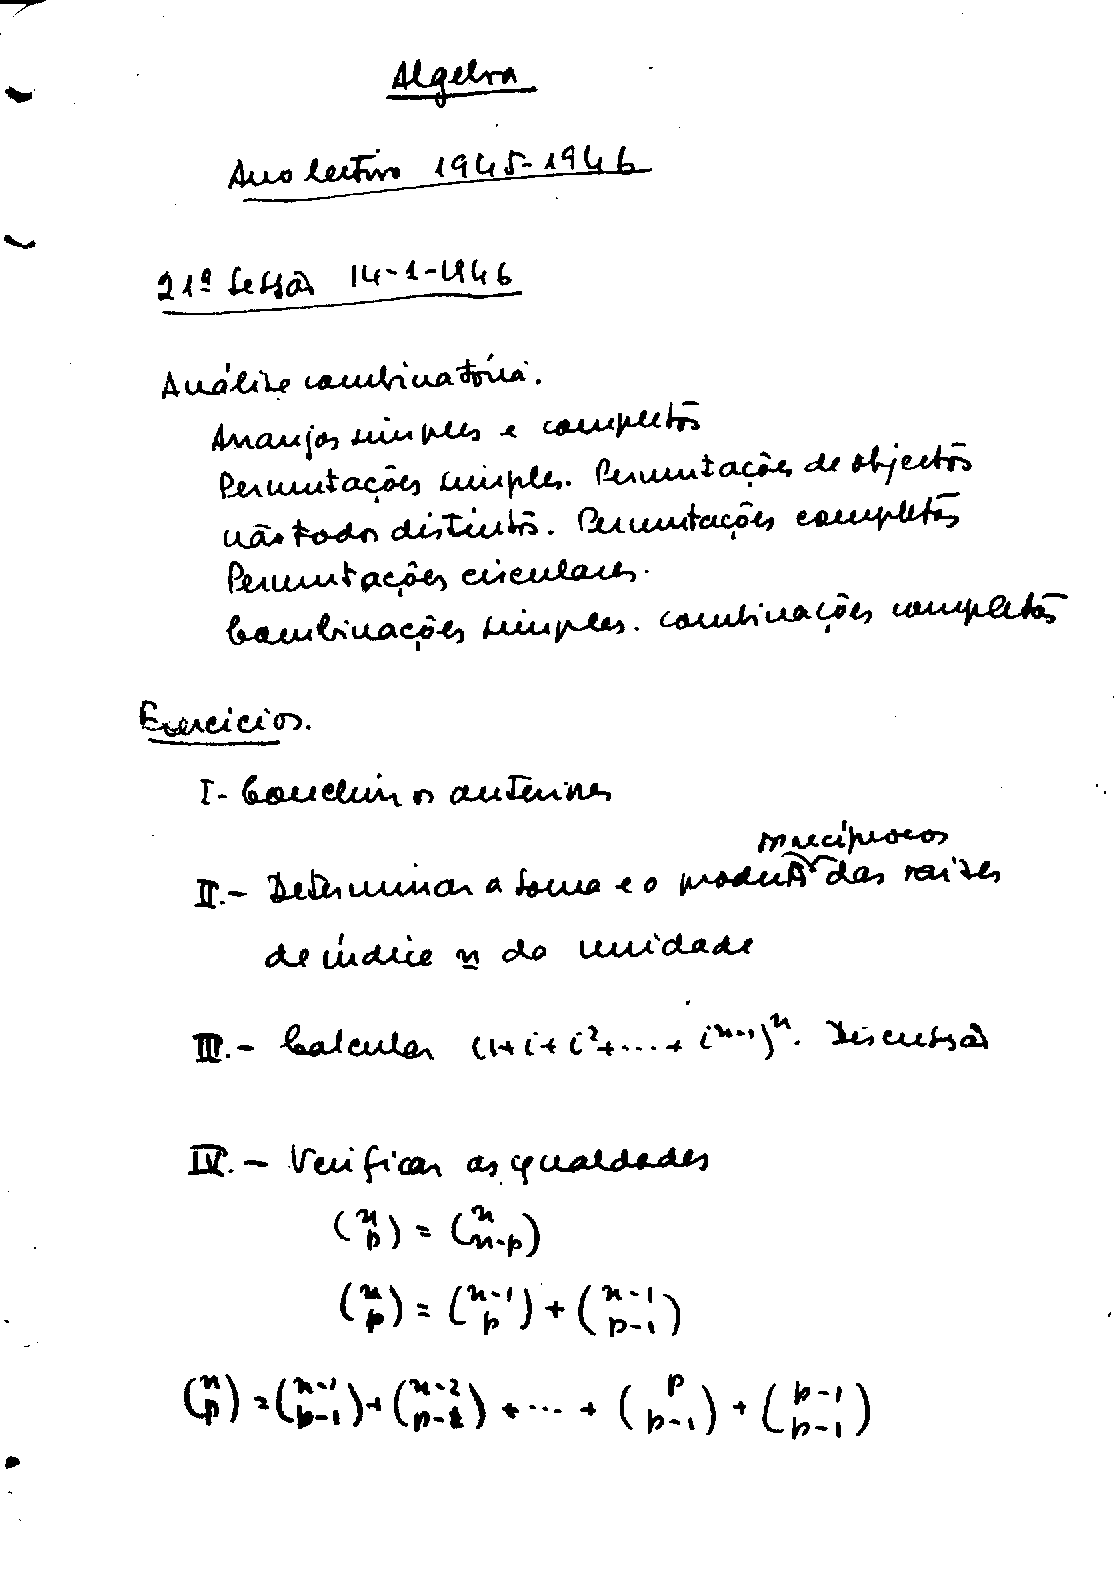 Algebra
Ano lectivo 1945-1946
21ª Sessão 14-1-1946
Análise combinatória.
Arranjos simples e completos
Permutações simples. Permutações de objectos
não todos distintos. Permutações completas
Permutações circulares.
Combinações simples. Combinações completas
Exercícios.
I- Concluir os anteriores
recíprocos
II.- Determinar a soma e o produto das raízes
de índice n da unidade
III.- Calcular (1+i+i²+...+i^{n-1})^n. Discussão
IV.- Verificar as igualdades
(n p) = (n n-p)
(n p) = (n-1 p) + (n-1 p-1)
(n p) = (n-1 p-1) + (n-2 p-1) + ... + (p p-1) + (p-1 p-1)